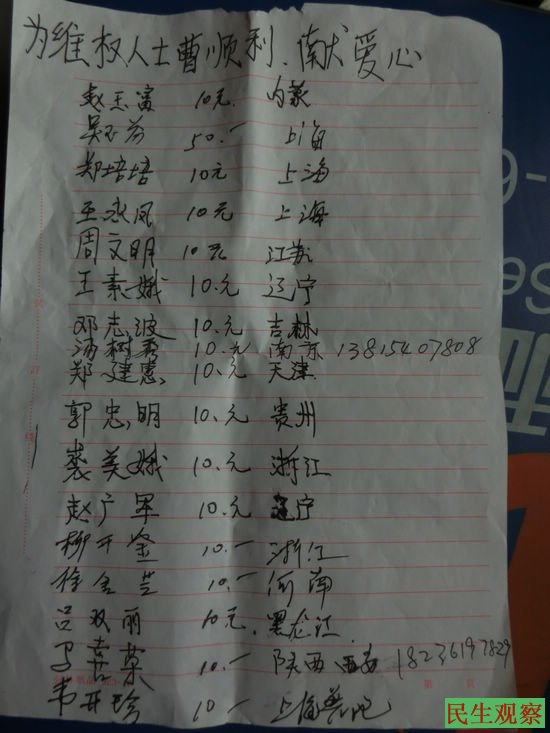 为维权人士曹顺利.献爱心
赵玉富 10元. 内蒙
吴玉芬 50.一 上海
郑培培 10元 上海
王永凤 10元 上海
周文明 10元 江苏
王素娥 10.元 辽宁
邓志波 10.元 吉林
汤树秀 10.元 南京 13815407808
郑建惠 10.元 天津
郭忠明 10.元 贵州
裘美娥 10.元 浙江
赵广军 10.元 辽宁
柳开 10.一 浙江
徐金兰 10.一 河南
吕双丽 10元. 黑龙江.
10.一 陕西 西安 18236197829
韦开珍 10一 上海普陀
第 页
民生观察